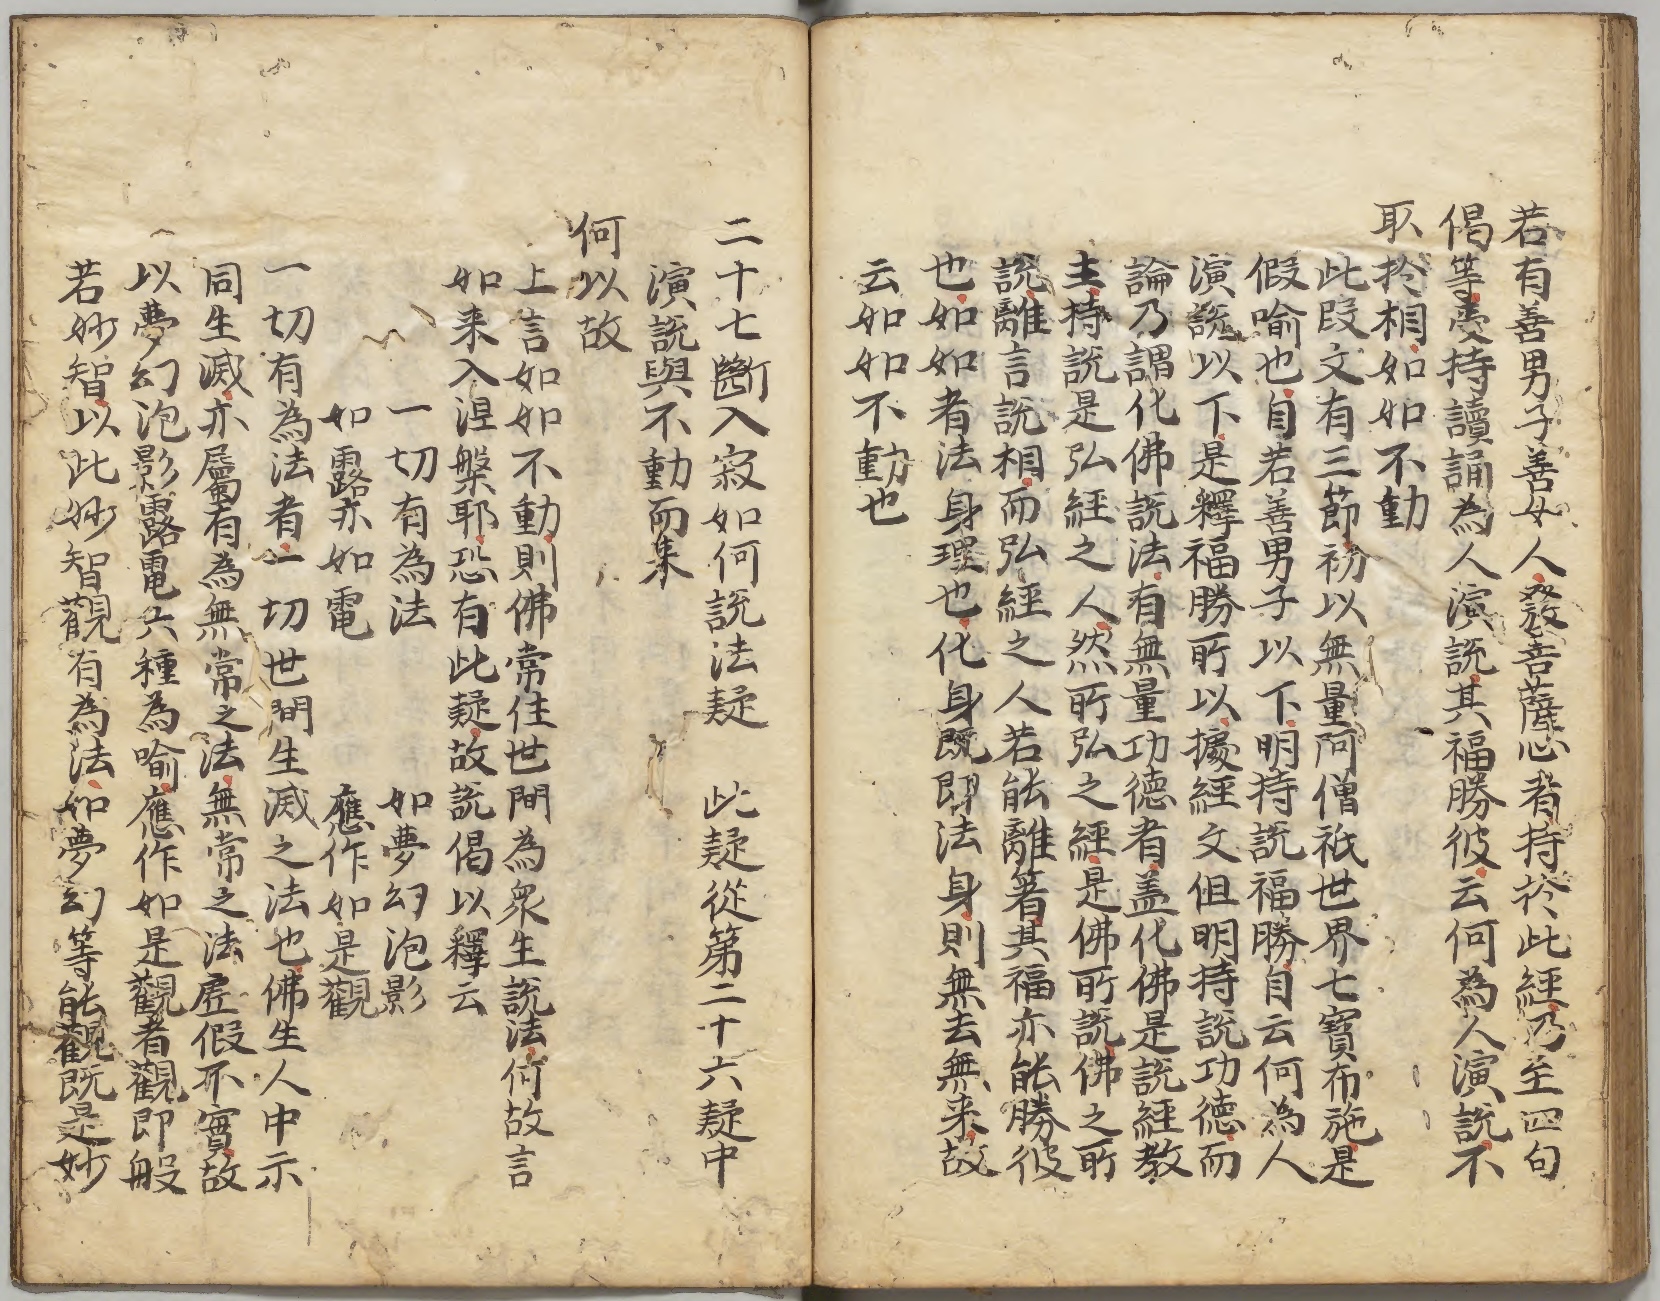 若有善男子善女人發菩薩心者持於此經乃至四句
偈等受持讀誦為人演說其福勝彼云何為人演說不
取於相如如不動
此段文有三節初以無量阿僧祇世界七寶布施是
假喻也自若善男子以下明持說福勝自云何為人
演說以下是釋福勝所以據經文但明持說功德而
論乃謂化佛說法有無量功德者盖化佛是說經教
主持說是弘經之人然所弘之經是佛所說佛之所
說離言說相而弘經之人若能離著其福亦能勝彼
也如如者法身理也化身既即法身則無去無来故
云如如不動也
二十七斷入寂如何說法疑 此疑從第二十六疑中
演說與不動而来
何以故
上言如如不動則佛常住世間為衆生說法何故言
如来入涅槃耶恐有此疑故說偈以釋云
一切有為法 如夢幻泡影
如露亦如電 應作如是觀
一切有為法者一切世間生滅之法也佛生人中示
同生滅亦屬有為無常之法無常之法虛假不實故
以夢幻泡影露電六種為喻應作如是觀者觀即般
若妙智以此妙智觀有為法如夢幻等能觀既是妙